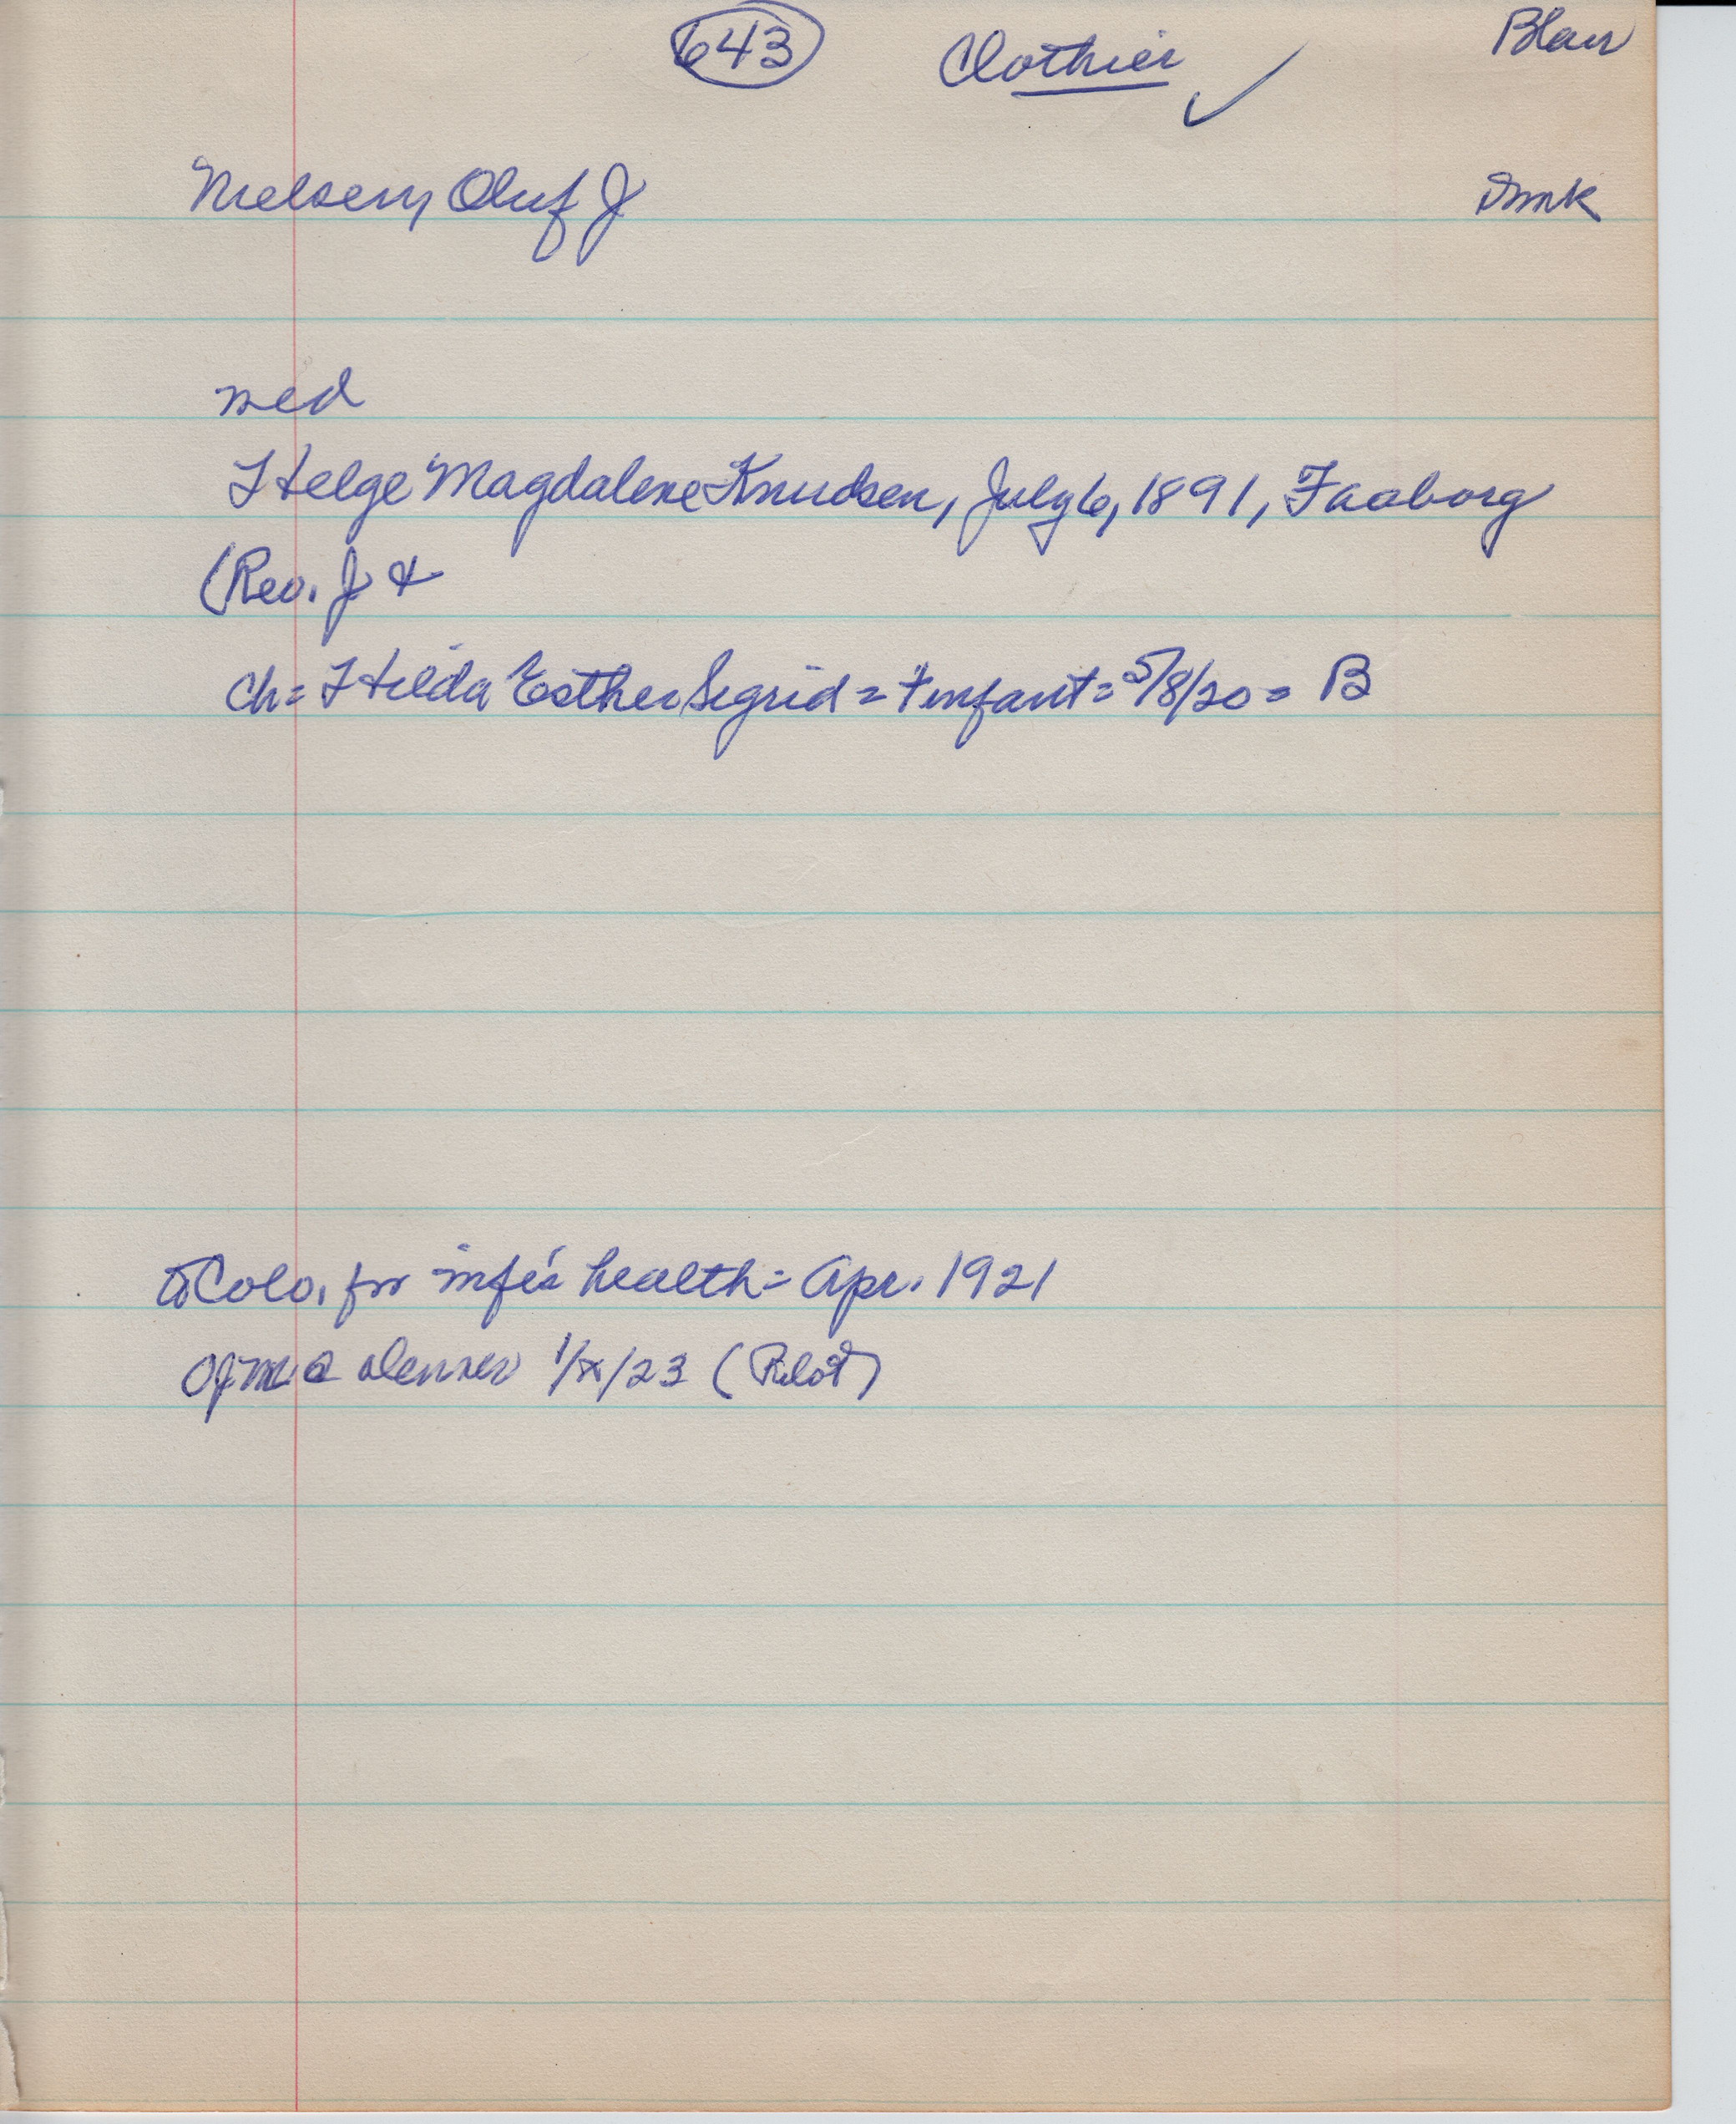 643 Clothier ✓ Blair
Nielsen, Oluf J Dmk
med
Helge Magdalene Knudsen, July 6, 1891, Faaborg
(Rev. J &
Ch = Hilda Esther Sigrid = + infant = 5/8/20 = B
to Colo, for wife's health = Apr. 1921
Denver 1/x/23 (Pilot)